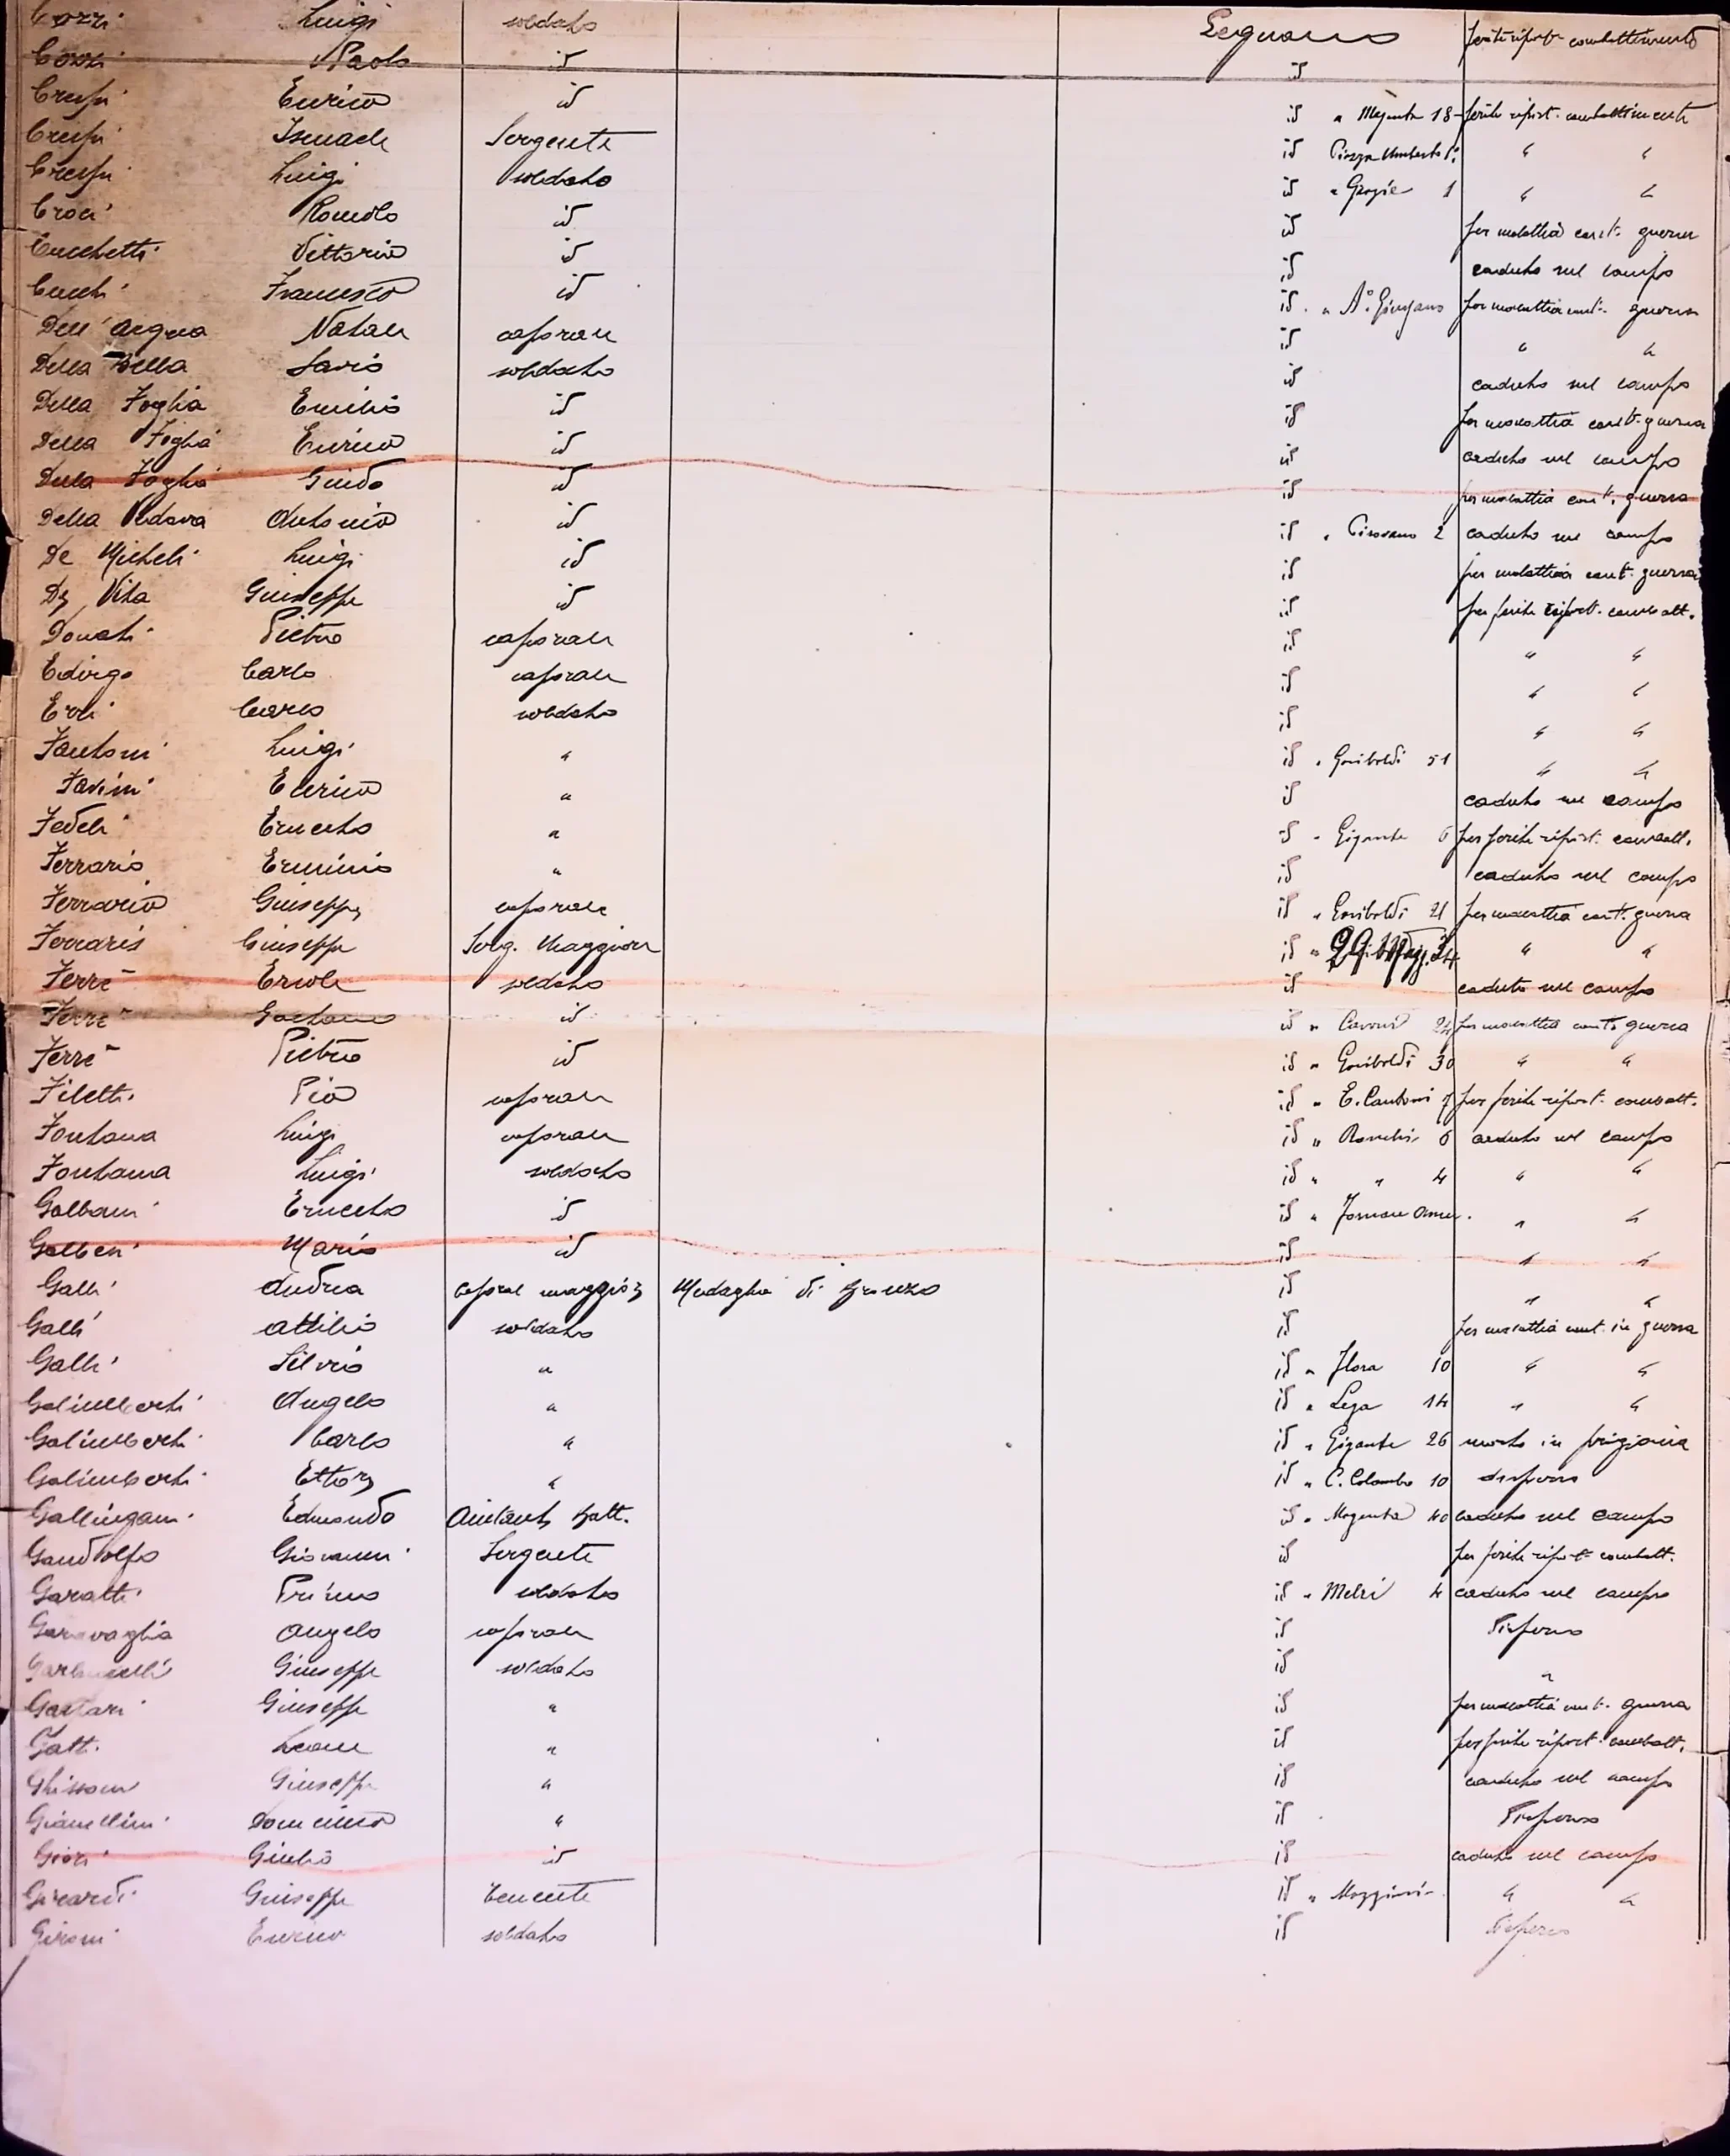 Cozzi Luigi soldato Legnano ferite riport. combattimento
Cozzi Paolo id id
Crespi Enrico id id " Magenta 18 ferite riport. combattimento
Crespi Ismaele Sergente id Piazza Umberto I° " "
Crespi Luigi soldato id " Grazie 1 " "
Croci Romolo id id per malattia cont. guerra
Cucchetti Vittorio id id caduto sul campo
Cucchi Francesco id id " per malattia cont. guerra
Dell'Acqua Natale caporale id " "
Della Bella Savio soldato id caduto sul campo
Della Foglia Emilio id id per malattia cont. guerra
Della Foglia Enrico id id caduto sul campo
Della Foglia Guido id id per malattia cont. guerra
Della Vedova Antonio id id " 2 caduto sul campo
De Micheli Luigi id id per malattia cont. guerra
De Vita Giuseppe id id per ferite riport. combatt.
Donati Pietro caporale id " "
Edirgo Carlo caporale id " "
Erli Carlo soldato id " "
Fantoni Luigi " id " Garibaldi 51 " "
Favini Enrico " id caduto sul campo
Fedeli Ernesto " id " Gigante 6 per ferite riport. combatt.
Ferrario Erminio " id caduto sul campo
Ferrario Giuseppe caporale id " Garibaldi 21 per malattia cont. guerra
Ferraris Giuseppe Serg. Maggiore id " " "
Ferrè Ercole soldato id caduto sul campo
Ferrè Gaetano id id " Cavour 24 per malattia cont. guerra
Ferrè Pietro id id " Garibaldi 30 " "
Filetti Pio caporale id " E. Cantoni 7 per ferite riport. combatt.
Fontana Luigi caporale id " Ronchi 6 caduto sul campo
Fontana Luigi soldato id " " 4 " "
Galbani Ernesto id id " " "
Galberi Mario id id " "
Galli Andrea caporal maggiore Medaglia di bronzo id " "
Galli Attilio soldato id per malattia cont. in guerra
Galli Silvio " id " Flora 10 " "
Galimberti Angelo " id " Lega 14 " "
Galimberti Carlo " id " Gigante 26 morto in prigionia
Galimberti Ettore " id " C. Colombo 10 disperso
Gallingani Edmondo Aiutante Batt. id " Magenta 40 caduto sul campo
Gandolfo Giovanni Sergente id per ferite riport. combatt.
Garatti Primo soldato id " Melzi 4 caduto sul campo
Garavaglia Angelo caporale id Disperso
Giuseppe soldato id "
Gastari Giuseppe " id per malattia cont. guerra
Gatti Leone " id per ferite riport. combatt.
Ghisson Giuseppe " id caduto sul campo
Gianellini Domenico " id Disperso
Giori Giulio id id caduto sul campo
Girardi Giuseppe Tenente id " " "
Gironi Enrico soldato id Disperso